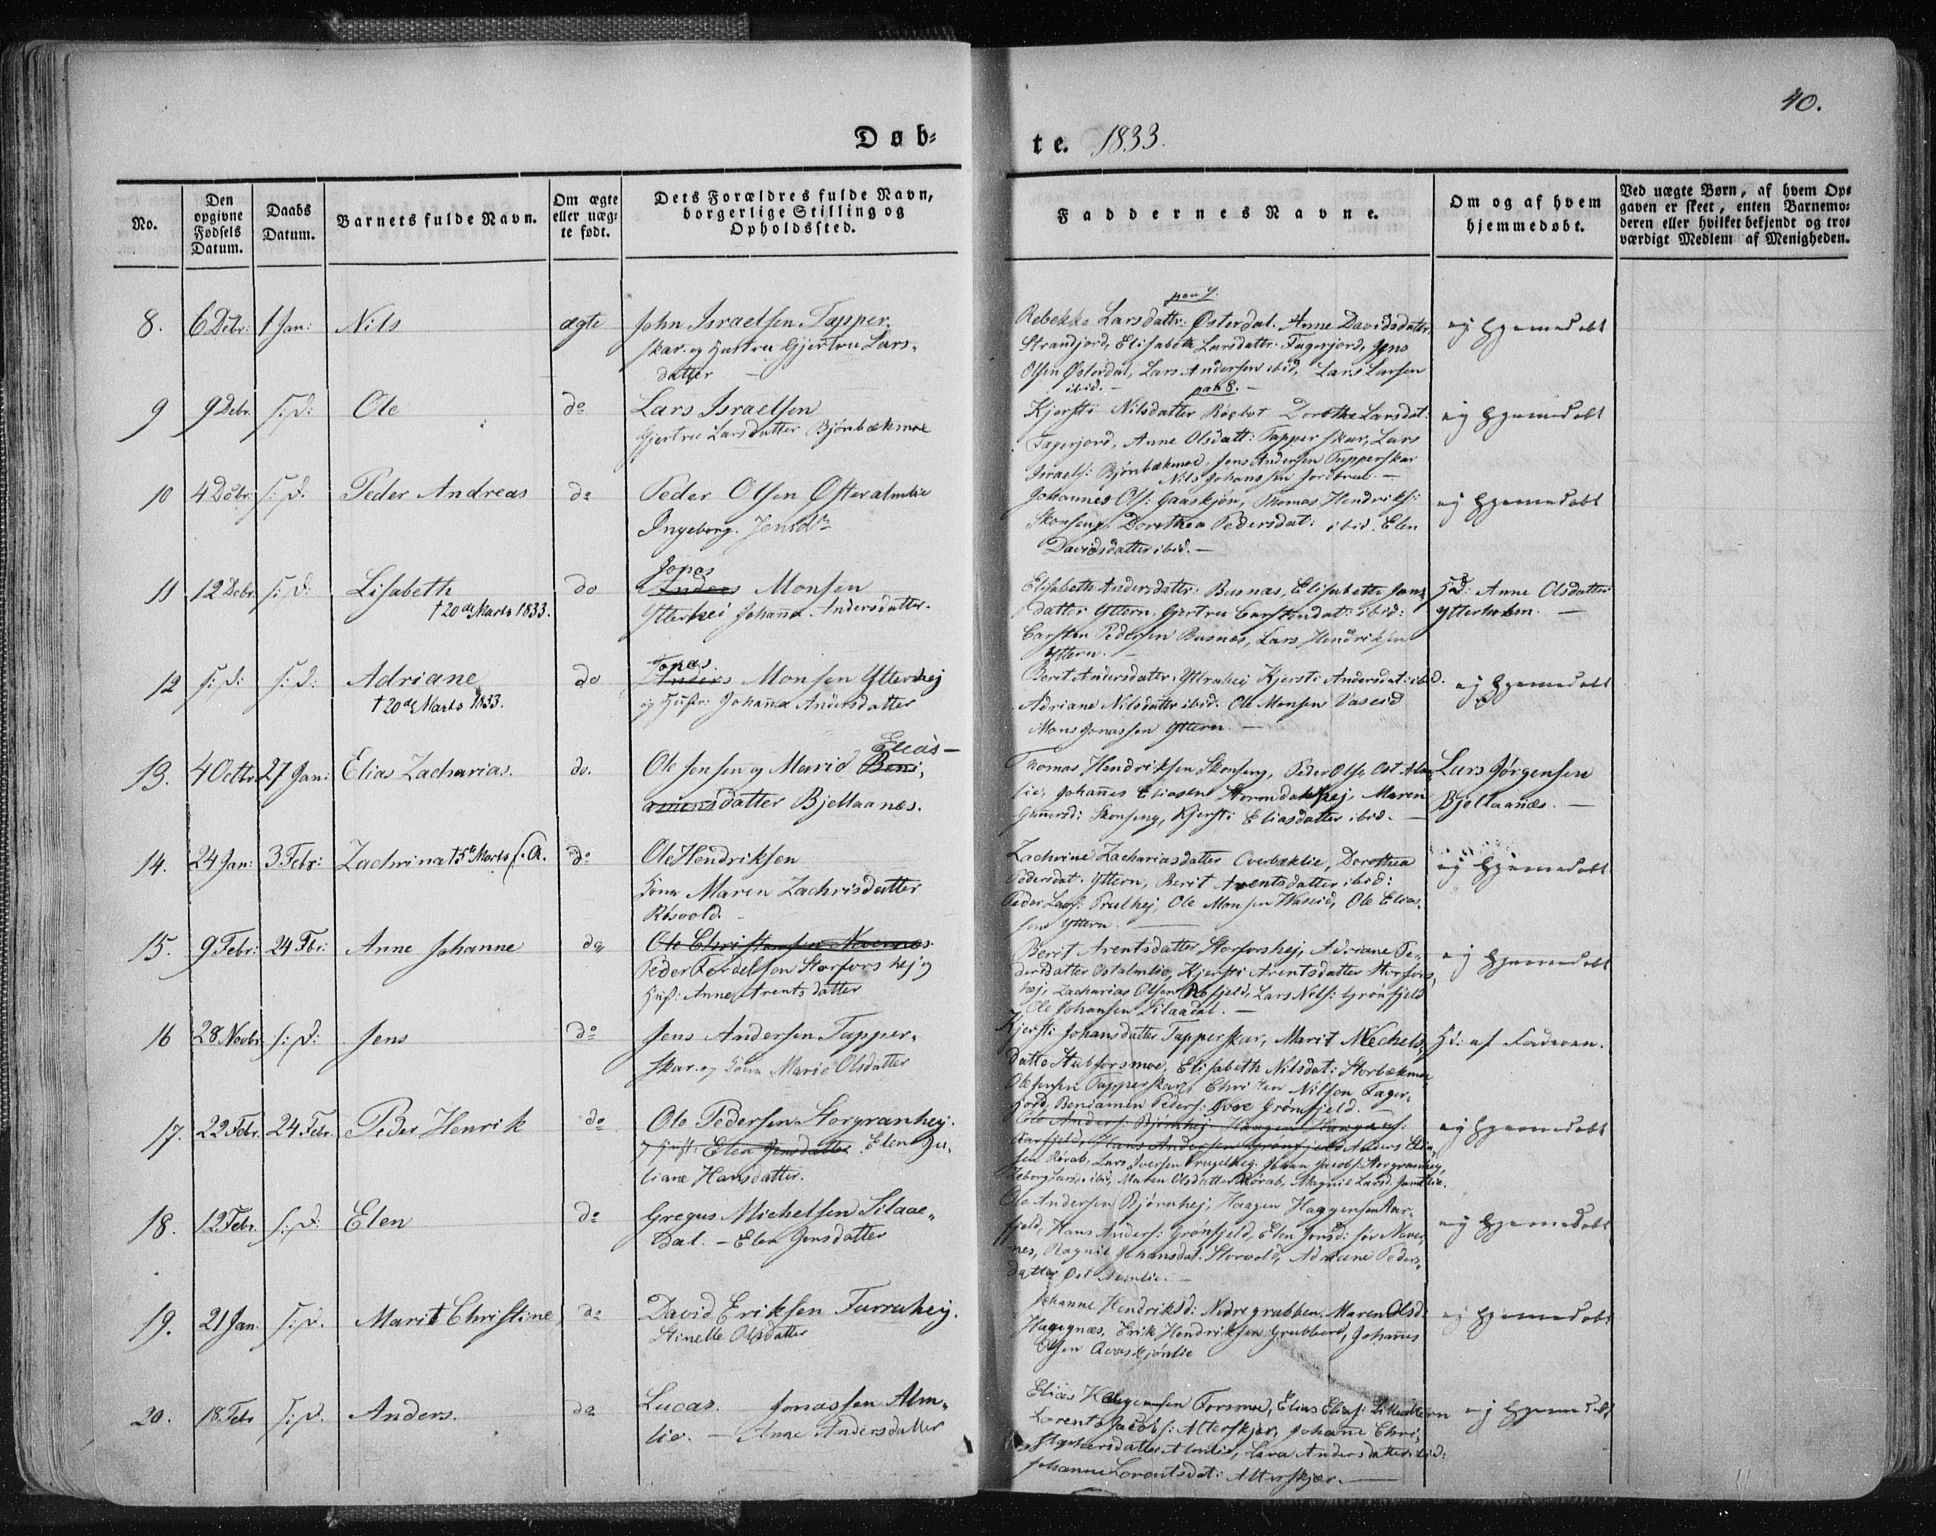 40.
Døb-
te. 1833.
No.
Den opgivne Fødsels Datum.
Daabs Datum.
Barnets fulde Navn.
Om ægte eller uægte født.
Dets Forældres fulde Navn, borgerlige Stilling og Opholdssted.
Faddernes Navne.
Om og af hvem hjemmedøbt.
Ved uægte Børn, af hvem Opgaven er skeet, enten Barnemoderen eller hvilket bekjendt og troværdigt Medlem af Menigheden.
8. 6 Debr: 1 Jan: Nils ægte John Israelsen Tapper-
skar. og Hustru Gjertru Lars-
datter
Rebekke Larsdattr: Østerdal. Anne Davidsdatter
Strandjord, Elisabeth Larsdattr: Fagerjord, Jens
Olsen Østerdal, Lars Andersen ibid, Lars Larsen
ibid. —
ej hjemmedøbt
9 9 Debr. s: d: Ole do Lars Israelsen
Gjertru Larsdatter Bjønbækmoe
Kjersti Nilsdatter Røsbot Dorothe Larsdat:
Fagerjord, Anne Olsdatt: Tapperskar, Lars
Israels: Bjønbækmoe, Jens Andersen Tapperskar
Nils Johanssen Jordbrue. —
ej hjemmedøbt
10 4 Debr: s: d: Peder Andreas do Peder Olsen Østeralmlie
Ingeborg. Jensdtr
Johannes Ols: Gaaskjøn, Thomas Hendriks:
Skonseng, Dorothea Pedersdat: ibid. Elen
Davidsdatter ibid. —
ej hjemmedøbt
11 12 Debr. s: d: Lisabeth do Jonas
Anders Monsen
† 20de Marts 1833. Ytterhei Johanna Andersdatter.
Elisabeth Andersdatter: Busnæs, Elisabethe Jans
datter Yttern, Gjertru Carstendat: ibid:
Carsten Pedersen Busnes, Lars Hendriksen
Yttern. —
Hd: Anne Olsdatter
Ytterholm. —
12 s: d: s: d: Adriane do Jonas
Anders Monsen Ytterhej
† 20de Marts 1833. og Hustr: Johanna Andersdatter
Berit Andersdatter Yttrahej Kjersti Andersdat: ibid.
Adriane Nilsdatter ibid. Ole Monsen Vaseid
Mons Jonassen Yttern. —
ej hjemmedøbt
13. 4 Octbr. 27 Jan: Elias Zacharias. do. Ole Jensen og Marid Elias —
Beni-
amensdatter Bjellaanæs.
Thomas Hendriksen Skonseng, Peder Ols: Ost Alm
lie, Johannes Eliasen Stormdalshej, Maren
Gunersd: Skonseng, Kjersti Eliasdatter ibid. —
Lars Jørgensen
Bjellaanæs. —
14. 24 Jan: 3 Febr: Zachrina † 5te Marts s. A. do Ole Hendriksen
Kone Maren Zachrisdatter
Røsvold. —
Zachrine Zachariasdatter Overbæklie, Dorothea
Pedersdat. Yttern, Berit Arentsdatter ibid:
Peder Lars: Prulhej, Ole Monsen Waseid, Ole Elias-
sen Yttern —
ej hjemmedøbt
15. 9 Febr: 24 Fbr: Anne Johanne do Ole Christensen Nævernes.
Peder Fordelsen Storforshej og
Hus: Anne Arentsdatter
Berit Arentsdatter Storforshej, Adriane Pe-
dersdatter Ostalmlie, Kjersti Arentsdatter Storfors
hej, Zacharias Olsen Røfjeld, Lars Nils: Grønfjeld
Ole Johansen Silaadal. —
ej hjemmedøbt
16 28 Novbr. s: d: Jens do Jens Andersen Tapper-
skar. og Kone Marie Olsdatter
Kjersti Johansdatter Tapperskar, Marit Mechels-
datte Stubforsmoe, Elisabeth Nilsdat: Storbækmoe
Ole Jensen Tapperskar, Christen Nilsen Fager-
jord, Beniamen Peders: Øvre Grønfjeld. —
Hd: af Faderen.
17. 22 Febr. 24 Febr. Peder Henrik do Ole Pedersen Storgranhej.
og Hust: Elen Jensdatter. Elen Ju-
liane Hansdatter.
Ole Anders: Bjørnhej
Hans Andersen Grønfjeld Anders Elia-
sen Rørab, Lars Iversen Johan Jacobs: Storgranhej,
Maren Olsdatter Rørab, Magnil Larsd:
ej hjemmedøbt
18. 12 Febr. s: d: Elen do Gregus Michelsen Silaae-
dal. — Elen Jensdatter
Ole Andersen Bjørnhej, Haagen Haagensen Rar-
fjeld, Hans Anders: Grønfjeld, Elen Jensd: før Næver-
nes, Ragnil Johansdat. Storvold, Adriane Peders-
datter Ost Almlie. —
ej hjemmedøbt
19. 21 Jan: s: d. Marit Christine do David Eriksen Furruhej.
Stinelle Olsdatter
Johanne Hendriksd: Nedregrubben, Maren Olsd:
Hagegnæs, Erik Hendriksen Grubben, Johannes
Olsen Avaskjønlie
ej hjemmedøbt
20. 18 Febr s: d. Anders. do Lucas. Jonassen Alm-
lie. — Anne Andersdatter
Elias Haagensen Forsmoe, Elias Elias:
Lorents Jacobs: Alterskjær, Johanne Chri-
stophersdatter Almlie, Lava Andersdatter ibid:
Johanne Lorentsdat: Alterskjær. —
ej hjemmedøbt